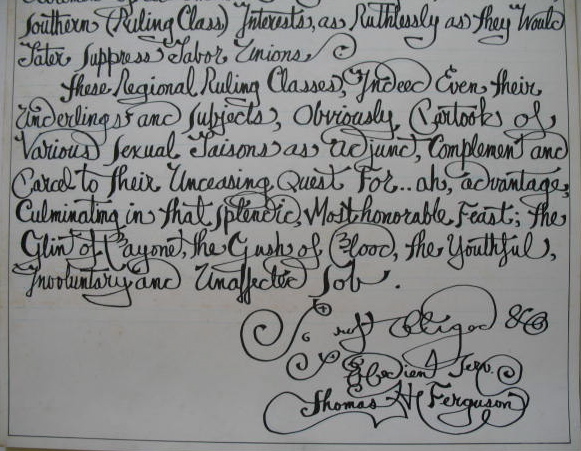 Southern (Ruling Class) Interests, as Ruthlessly as they Would
Later Suppress Labor Unions.
These Regional Ruling Classes, Indeed Even their
Underlings and Subjects, Obviously Partook of
Various Sexual Liaisons as Adjunct, Complement and
Parcel to Their Unceasing Quest For.. ah, advantage,
Culminating in that Splendid, Most honorable Feast; the
Glint of Bayonet, the Gush of Blood, the Youthful,
Involuntary and Unaffected Sob.
Obliged &
Obedient Serv.
Thomas H Ferguson